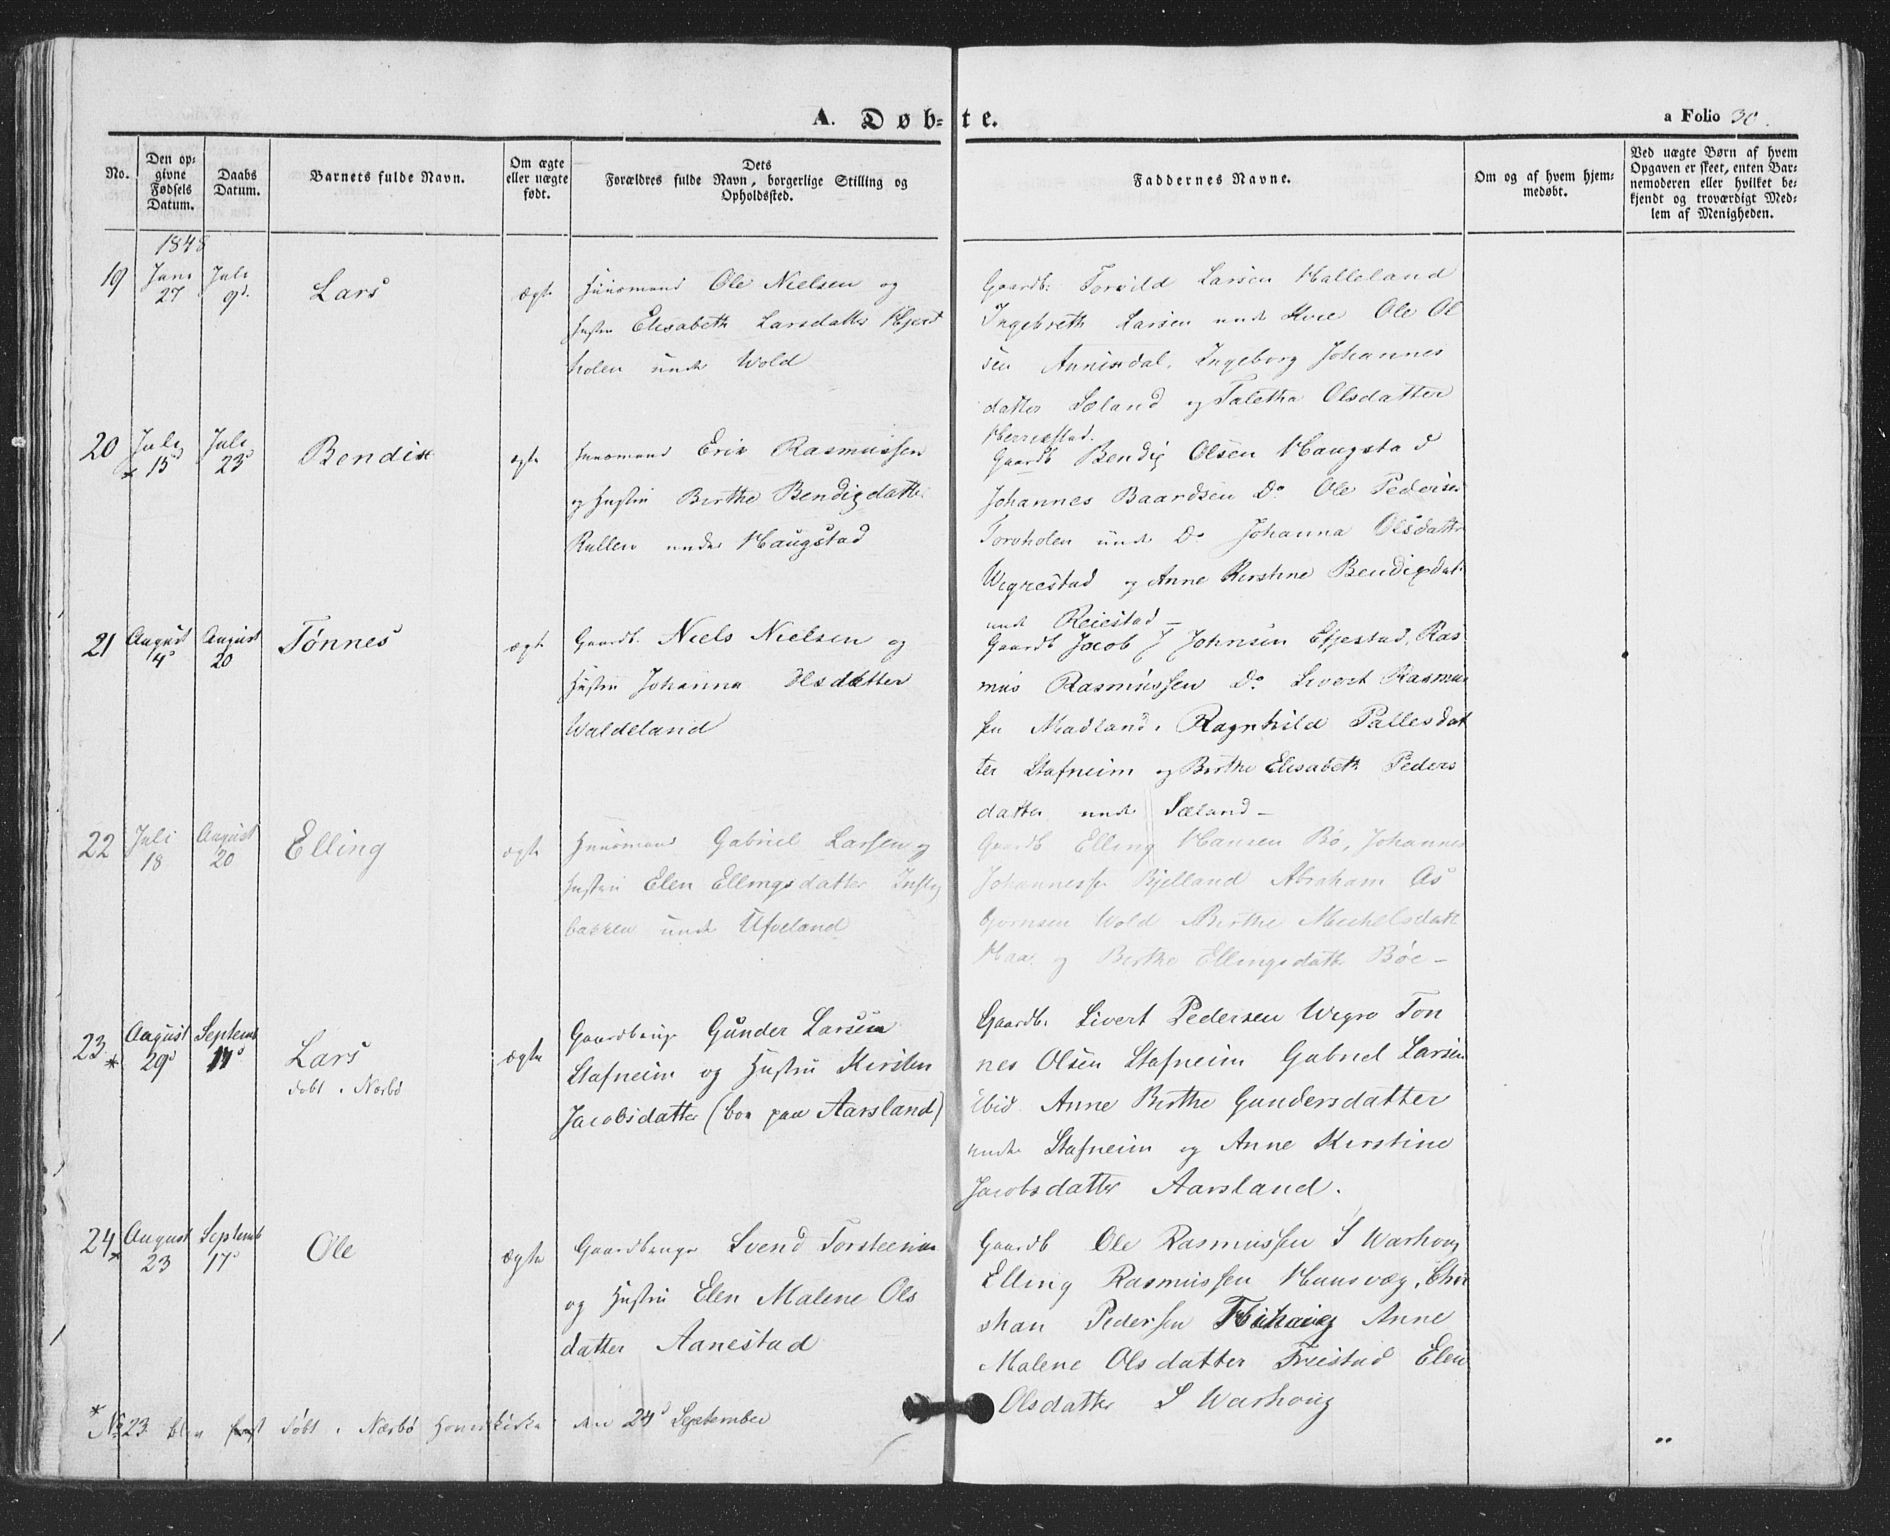 A. Døb-te.
a Folio 30.
No.
Den op-
givne
Fødsels
Datum.
Daabs
Datum.
Barnets fulde Navn.
Om ægte
eller uægte
født.
Dets
Forældres fulde Navn, borgerlige Stilling og
Opholdssted.
Faddernes Navne.
Om og af hvem hjem-
medøbt.
Ved uægte Børn af hvem
Opgaven er skeet, enten Bar-
nemoderen eller hvilket be-
kjendt og troværdigt Med-
lem af Menigheden.
1848
19
Juni
27
Juli
9d.
Lars
ægte
Huusmand Ole Nielsen og
Hustru Elisabeth Larsdatter Kjerd
holen unde Wold
Gaardb: Torvild Larsen Halleland
Ingebreth Larsen unde Hvie Ole Ol
sen Anniesdal, Ingeborg Johannes
datter Sæland og Taletha Olsdatter
Herrestad.
20
Juli
15d
Juli
23d
Bendix
ægte
Huusmand Erik Rasmussen
og Hustru Berthe Bendixdatter
Rullen under Haugstad
Gaardb Bendix Olsen Haugstad
Johannes Baardsen Do Ole Pedersen
Torvholen unde Do Johanna Olsdatter
Wigrestad og Anne Kirstine Bendixdat
unde Reiestad —
21
August
4d
August
20
Tønnes
ægte
Gaardb. Niels Nielsen og
Hustru Johanna Olsdatter
Waldeland
Gaardb Jacob J Johnsen Efjestad, Ras
mus Rasmussen Do. Sivert Rasmus
sen Madland. Ragnhild Pallesdat
ter Stafneim og Berthe Elisabeth Peders
datter unde Sæland —
22
Juli
18
August
20
Elling
ægte
Huusmand Gabriel Larsen og
Hustru Elen Ellingsdatter
bakken unde Ufveland
Gaardb Elling Hansen Bø, Johannes
Johannessen Bjelland Abraham As
bjørnsen Wold Berthe Michelsdatt
Haa. og Berthe Ellingsdatte Bøe —
23 *
August
29d
Septemb
17d
Lars
døbt i Nærbø
ægte
Gaardbruge Gunder Larsen
Stafneim og Hustru Kirsten
Jacobsdatter (boe paa Aarsland)
Gaardb. Sivert Pedersen Wigre Ton
nes Olsen Stafneim Gabriel Larsen
ibid. Anne Berthe Gundersdatter
unde Stafneim og Anne Kirstine
Jacobsdatter Aarsland.
24 *
August
23
Septemb
17d
Ole
ægte
Gaardbruge Svend Torstensen
og Hustru Elen Malene Ols
datter Aanestad
Gaardb Ole Rasmussen S Warhoug
Elling Rasmussen Huusvæg, Chri
stian Pedersen Anne
Malene Olsdatter Friestad Elen
Olsdatter S Warhoug
* No 23 blev først døbt i Nærbø Hovedkirke den 24d September